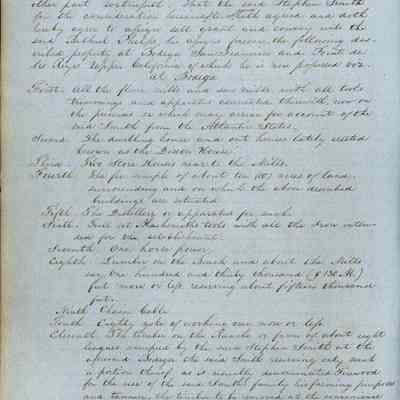 other part witnesseth, That the said Stephen Smith
for the consideration hereinafter doth agree and doth
hereby agree to assign sell grant and convey unto the
said his assigns forever the following des-
cribed property at Bodega San Francisco and Point de
los Reyes Upper California of which he is now possessed viz.
at Bodega
First. All the flour mills and saw mills with all tools
trimmings and apparatus connected therewith, now on
the premises or which may arrive for account of the
said Smith from the Atlantic States.
Second The dwelling house and out houses lately erected
known as the House
Third. Two Store Houses near to the Mills.
Fourth. The fee simple of about ten (10) acres of land
surrounding and on which the above described
buildings are situated
Fifth. The Distillery or apparatus for such
Sixth. Sett of Blacksmiths tools with all the Iron inten-
ded for the establishment
Seventh One horse power.
Eighth Lumber on the Beach and about the Mills
say One hundred and thirty thousand (130 M.)
feet more or less reserving about fifteen thousand
feet.
Ninth Chain Cable
Tenth Eighty yoke of working oxen more or less
Eleventh The timber on the Rancho or farm of about eight
leagues occupied by the said Stephen Smith at the
aforesaid Bodega the said Smith reserving only such
a portion thereof as is usually denominated Firewood
for the use of the said Smith's family his farming purposes
and tannery, the timber to be removed at the convenience